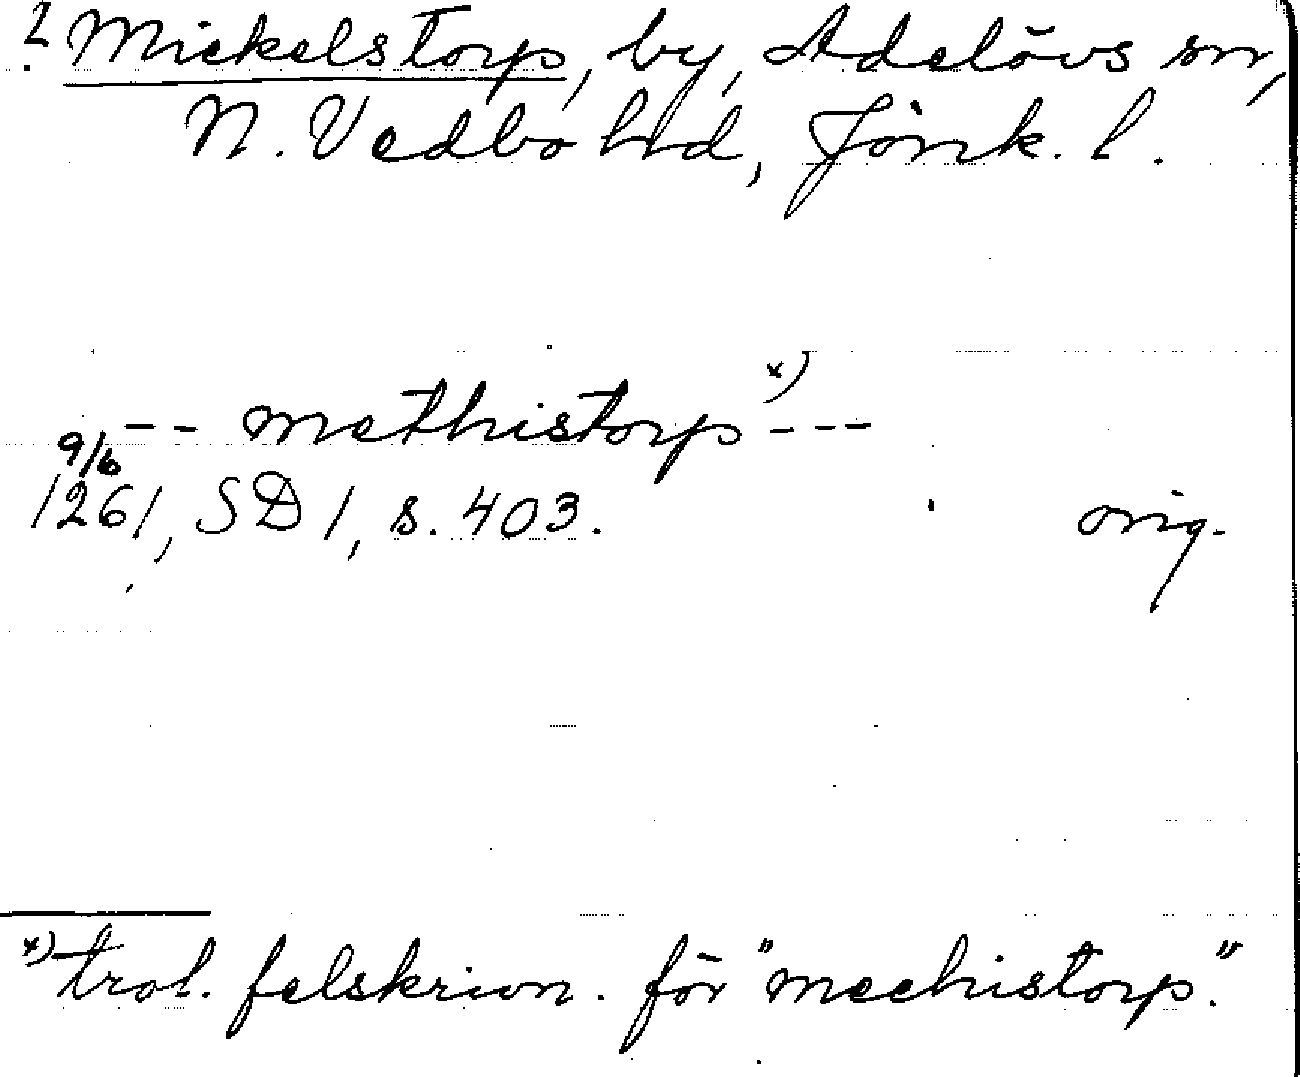 ? Mickelstorp, by, Adelövs sn,
N. Vedbo hd, Jönk. l.
-- methistorp x) ---
9/6
1261, SD 1, s. 403. orig.
x) trol. felskrivn. för "mechistorp."